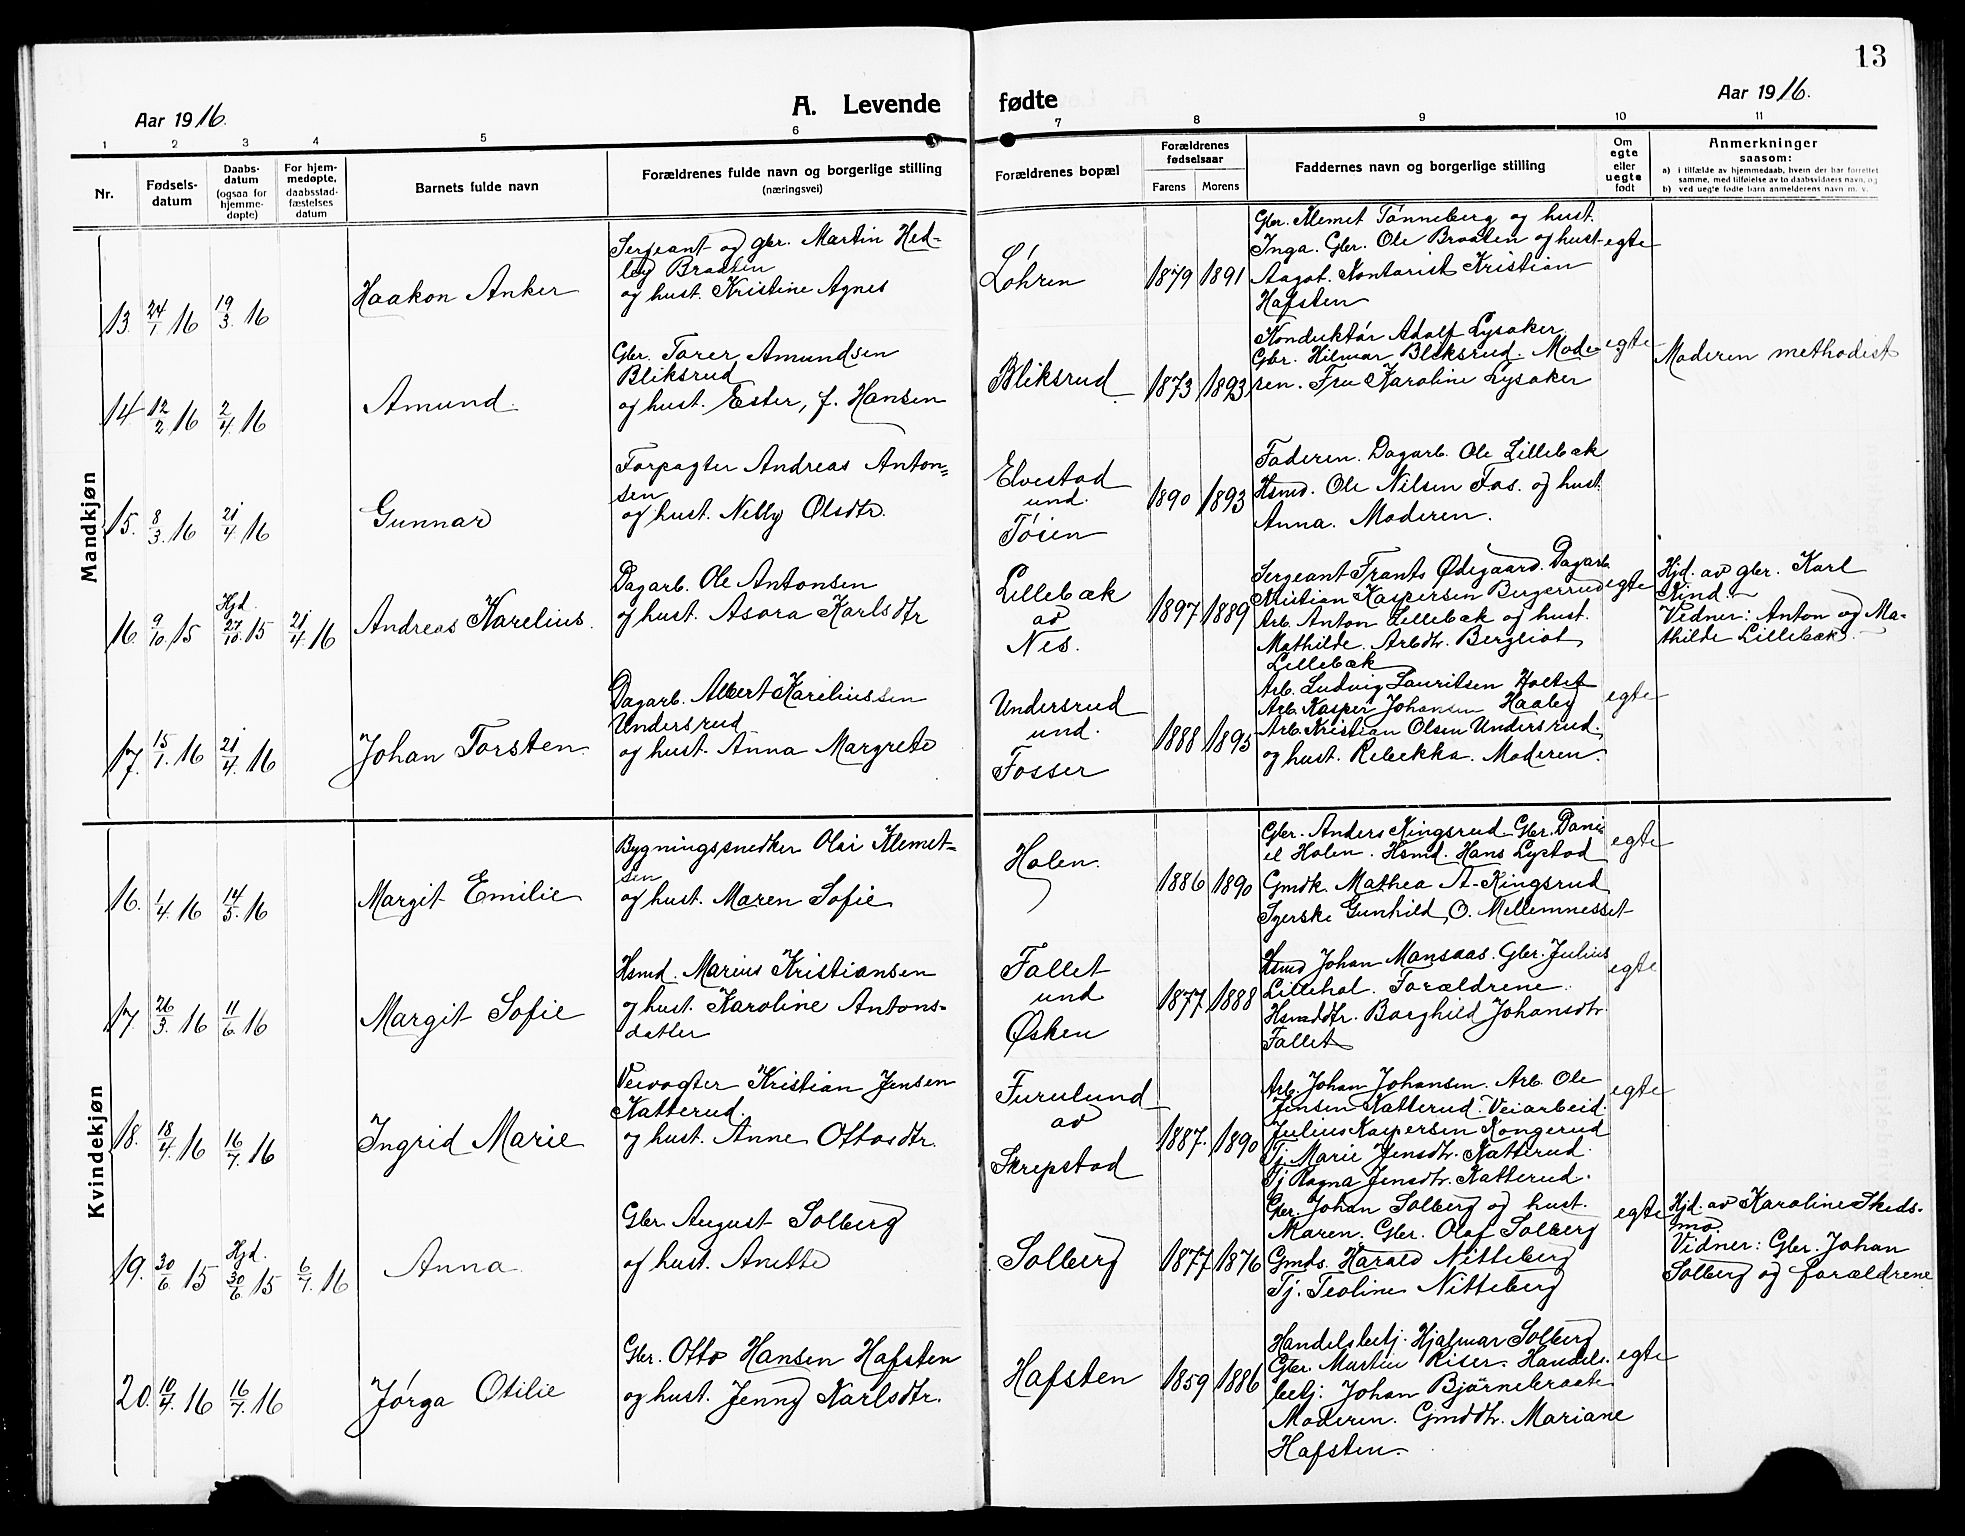 13
Aar 1916.
A. Levende fødte
Aar 1916.
1 2 3 4 5 6 7 8 9 10 11
Nr.
Fødsels-
datum
Daabs-
datum
(ogsaa for
hjemme-
døpte)
For hjem-
medøpte,
daabsstad-
fæstelses
datum
Barnets fulde navn
Forældrenes fulde navn og borgerlige stilling
(næringsvei)
Forældrenes bopæl
Forældrenes
fødselsaar
Farens Morens
Faddernes navn og borgerlige stilling
Om
egte
eller
uegte
født
Anmerkninger
saasom:
a) i tilfælde av hjemmedaab, hvem der har forrettet
samme, med tilføielse av to daabsvidners navn, og
b) ved uegte fødte barn anmelderens navn m. v.
Mandkjøn
13. 24/1 16 19/3. 16
Haakon Anker
Sergeant og gbr. Martin Hed-
ley Braaten
og hust. Kristine Agnes
Løhren
1879 1891
Gbr. Klemet Tønneberg og hust.
Inga. Gbr. Ole Braaten og hust.
Aagot. Kontorist Kristian
Hafsten
egte
14 12/2 16 2/4. 16
Amund.
Gbr. Torer Amundsen
Bliksrud
og hust. Ester, f. Hansen
Bliksrud
1873 1893
Konduktør Adolf Lysaker.
Gbr. Hilmar Bliksrud. Mode-
ren. Fru Karoline Lysaker
egte
Moderen methodist
15. 8/3. 16 21/4. 16
Gunnar
Forpagter Andreas Anton=
sen
og hust. Nelly Olsdtr.
Elvestad
und.
Tøien
1890 1893
Faderen. Dagarb. Ole Lillebæk
Hsmd. Ole Nilsen Fos. og hust.
Anna. Moderen.
16. 9/10 15 Hjd. 27/10. 15 21/4. 16
Andreas Karelius.
Dagarb. Ole Antonsen
og hust. Asora Karlsdtr
Lillebæk
av
Nes.
1897 1889
Sergeant Frants Ødegaard. Dagarb.
Kristian Kaspersen Bergerud
Arb. Anton Lillebæk og hust.
Mathilde. Arbdtr. Bergliot
Lillebæk
egte
Hjd. av gbr. Karl
Kind.
Vidner: Anton og Ma-
thilde Lillebæk.
17. 15/1. 16 21/4. 16
Johan Torsten.
Dagarb. Albert Kareliussen
Undersrud
og hust. Anna Margrete
Undersrud
und.
Fosser
1888 1895
Arb. Ludvig Lauritsen Holtet
Arb. Kasper Johansen Haaby
Arb. Kristian Olsen Undersrud.
og hust. Rebekka. Moderen.
egte
Kvindekjøn
16. 1/4. 16 14/5. 16
Margit Emilie
Bygningssnedker Olai Klemet-
sen
og hust. Maren Sofie
Holen.
1886 1890
Gbr. Anders Kingsrud Gbr. Dani-
el Holen. Hsmd. Hans Lystad
Gmdk. Mathea A. Kingsrud
Syerske Gunhild O. Mellemnesset
egte
17. 26/3. 16 11/6 16
Margit Sofie
Hsmd. Marius Kristiansen
og hust. Karoline Antons-
datter
Fallet
und
Øsken
1877 1888
Hsmd Johan Mansaas. Gbr. Julius
Lillehol. Forældrene.
Hsmddtr. Borghild Johansdtr.
Fallet
egte
18. 18/4. 16 16/7. 16
Ingrid Marie
Veivogter Kristian Jensen
Katterud.
og hust. Anne Ottosdtr.
Furulund
av
Skrepstad
1887. 1890
Arb. Johan Johansen. Arb. Ole
Jensen Katterud. Veiarbeid.
Julius Kaspersen Kongerud
Tj. Marie Jensdtr. Katterud.
Tj Ragna Jensdtr. Katterud.
egte
19. 30/6. 15 Hjd. 30/6 15 6/7. 16
Anna.
Gbr. August Solberg
og hust. Anette
Solberg
1877 1876
Gbr. Johan Solberg og hust.
Maren. Gbr. Olaf Solberg
Gmds. Harald Nitteberg
Tj. Teoline Nitteberg
egte
Hjd. av Karoline Skeds-
mo
Vidner: Gbr. Johan
Solberg og forældrene
20. 10/4. 16 16/7. 16
Jørga Otilie
Gbr. Otto Hansen Hafsten
og hust. Jenny Karlsdtr.
Hafsten
1859 1886
Handelsbetj. Hjalmar Solberg
Gbr. Martin Riser. Handels-
betj. Johan Bjørnebraate
Moderen. Gmddtr. Mariane
Hafsten.
egte